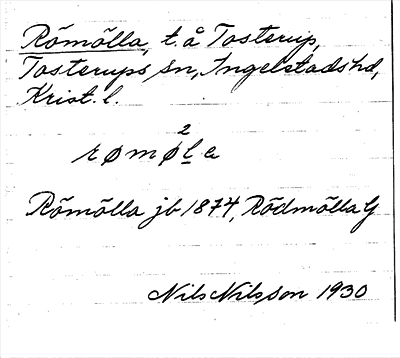 Römölla, t. å Tosterup,
Tosterups sn, Ingelstads hd,
Krist. l.
rømø²la
Römölla jb 1874, Rödmölla G
Nils Nilsson 1930